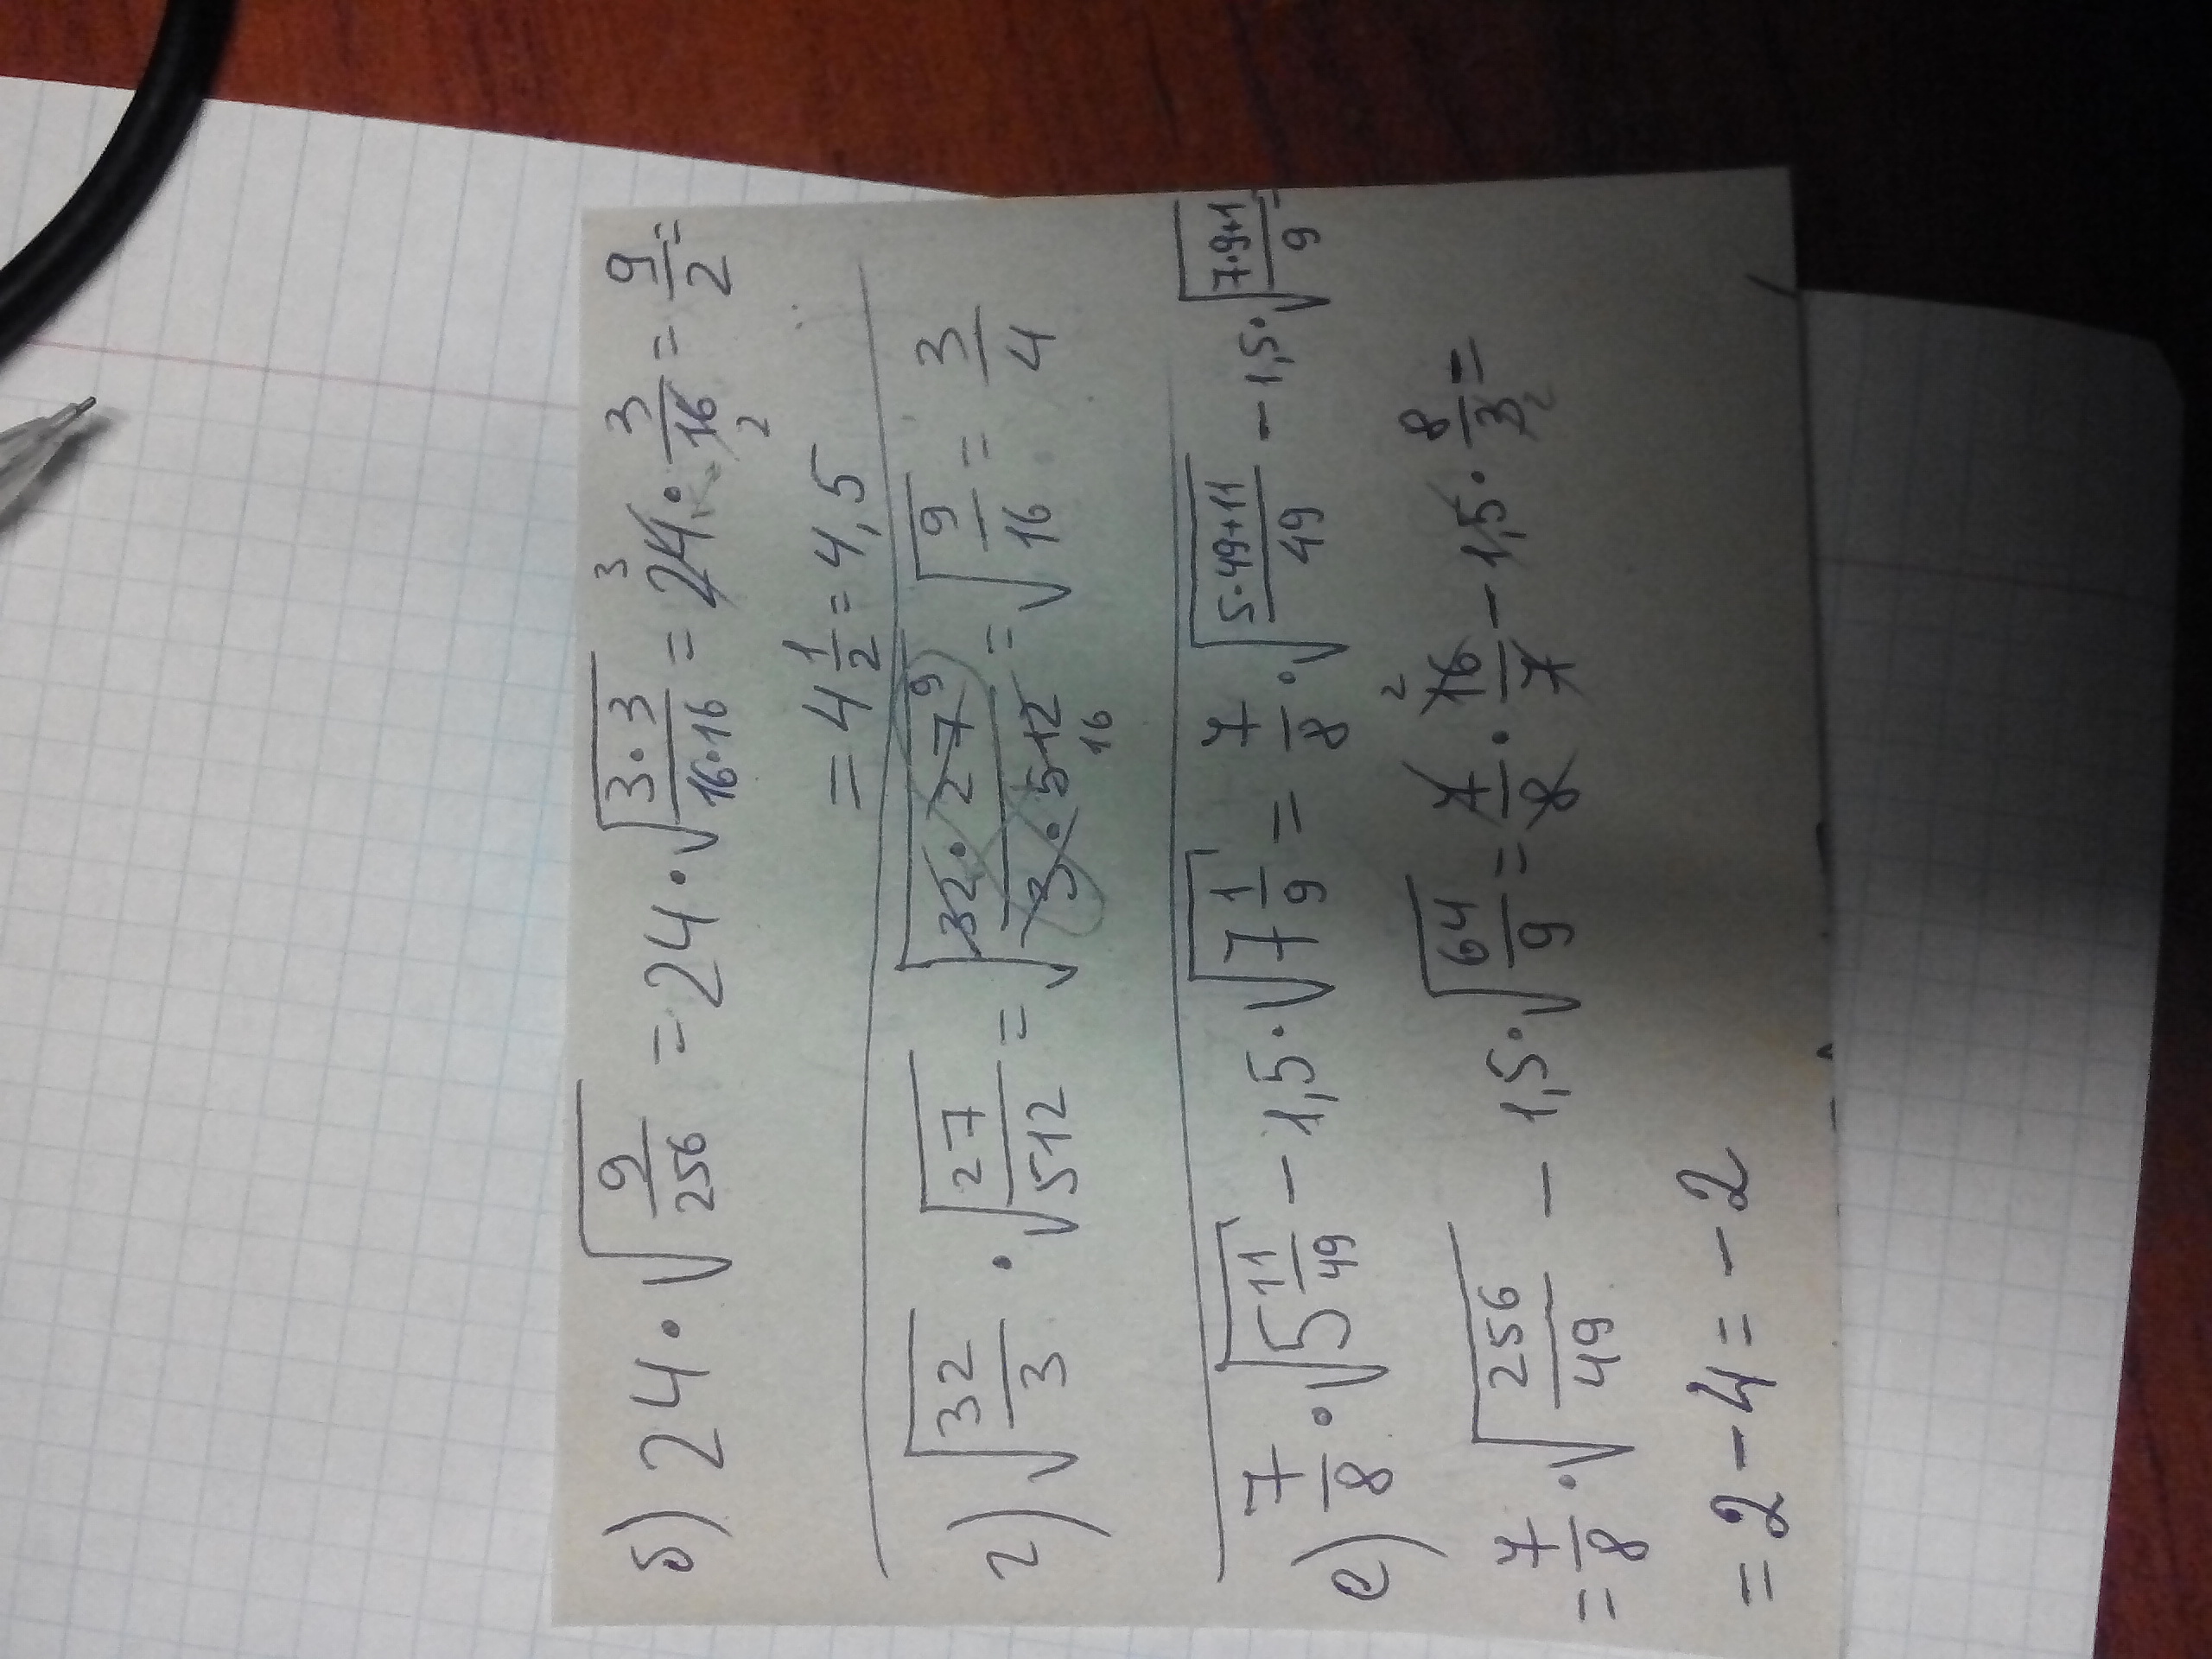 б) 24 · √(9/256) = 24 · √(3·3/16·16) = 24 3 · 3/16 2 = 9/2 =
= 4 1/2 = 4,5
г) √(32/3) · √(27/512) = √(32·27 9/3·512 16) = √(9/16) = 3/4
е) 7/8 · √(5 11/49) − 1,5 · √(7 1/9) = 7/8 · √(5·49+11/49) − 1,5 · √(7·9+1/9) =
= 7/8 · √(256/49) − 1,5 · √(64/9) = 7/8 · 16 2/7 − 1,5 · 8/3 2 =
= 2 − 4 = − 2